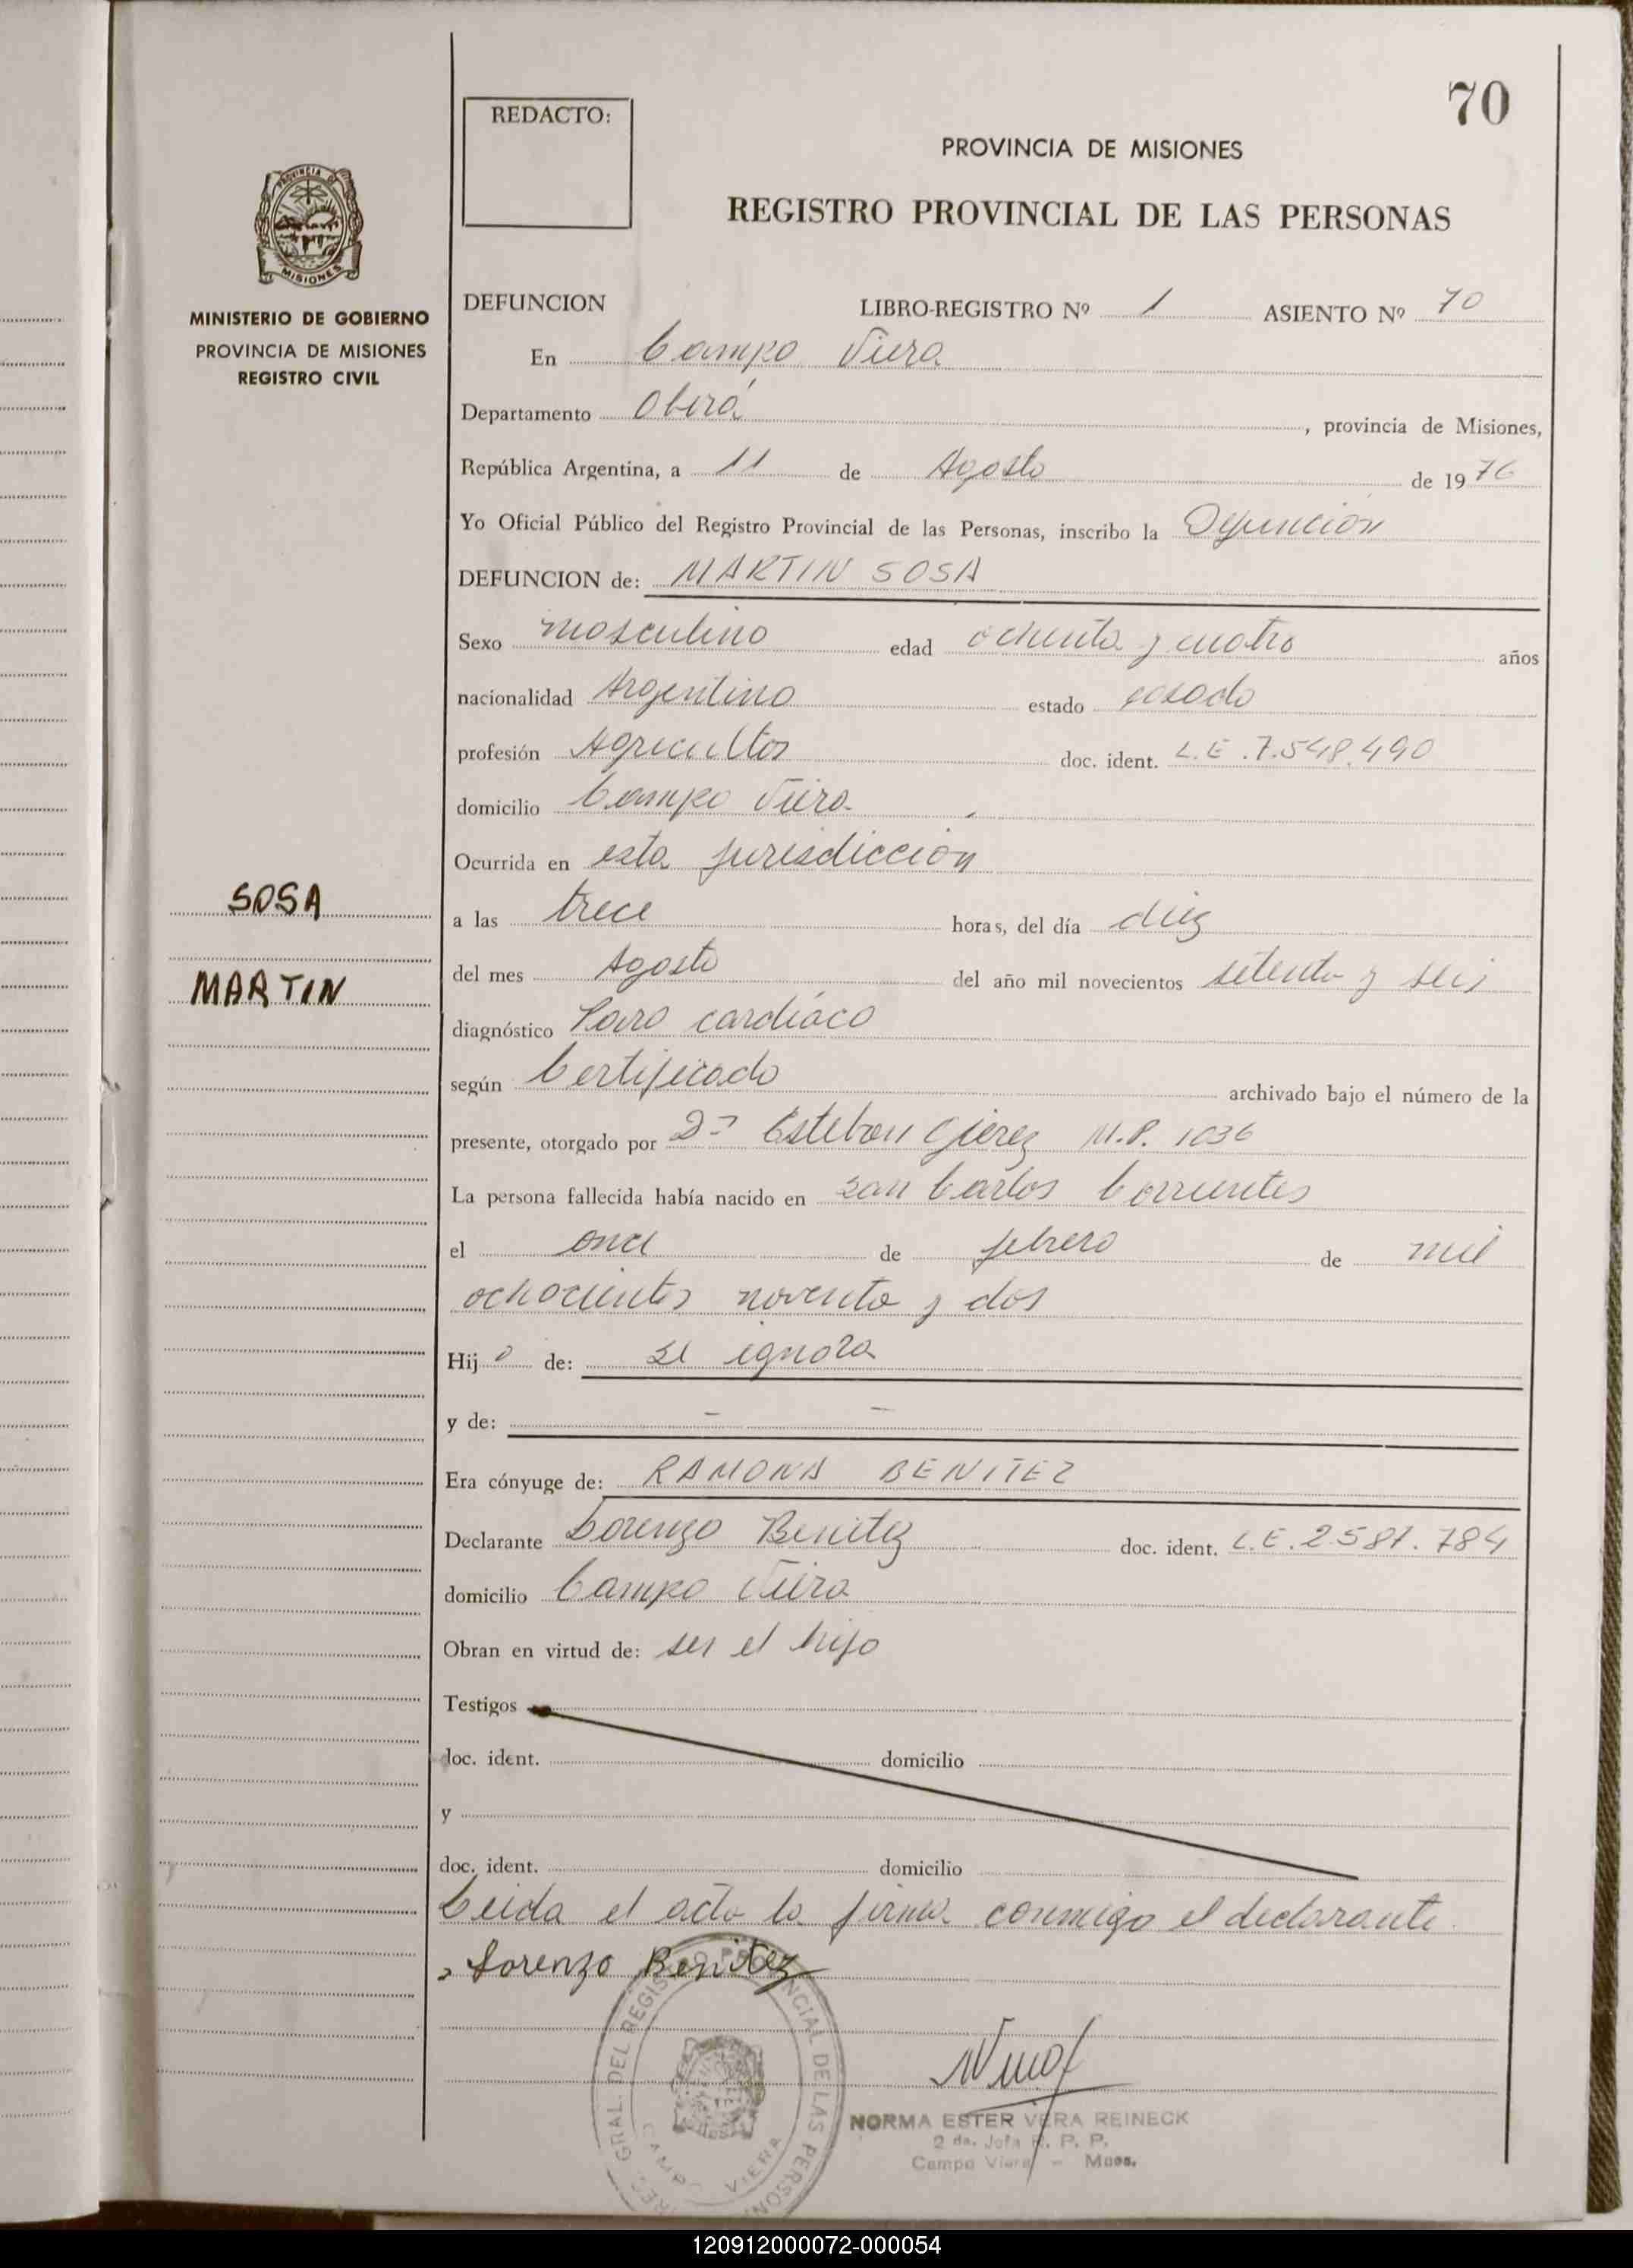 70
REDACTO:
PROVINCIA DE MISIONES
REGISTRO PROVINCIAL DE LAS PERSONAS
PROVINCIA DE
MISIONES
MINISTERIO DE GOBIERNO
PROVINCIA DE MISIONES
REGISTRO CIVIL
DEFUNCION LIBRO-REGISTRO Nº 1 ASIENTO Nº 70
En Campo Viera
Departamento Oberá, provincia de Misiones,
República Argentina, a 11 de Agosto de 1976
Yo Oficial Público del Registro Provincial de las Personas, inscribo la Defuncion
DEFUNCION de: MARTIN SOSA
Sexo masculino edad ochenta y cuatro años
nacionalidad Argentino estado casado
profesión Agricultor doc. ident. L.E.7.548.490
domicilio Campo Viera
Ocurrida en esta jurisdiccion
SOSA
a las trece horas, del día diez
del mes Agosto del año mil novecientos setenta y seis
MARTIN
diagnóstico Paro cardíaco
según Certificado archivado bajo el número de la
presente, otorgado por Dr Esteban Gierez M.P. 1036
La persona fallecida había nacido en San Carlos Corrientes
el once de febrero de mil
ochocientos noventa y dos
Hijo de: se ignora
y de: - -
Era cónyuge de: RAMONA BENITEZ
Declarante Lorenzo Benitez doc. ident. L.E.2.581.784
domicilio Campo Viera
Obran en virtud de: ser el hijo
Testigos
doc. ident. domicilio
y
doc. ident. domicilio
Leida el acta la firma conmigo el declarante.
Lorenzo Benitez
GRAL. DEL REGISTRO PROVINCIAL DE LAS PERSON
CAMPO VIERA
NORMA ESTER VERA REINECK
2 da. Jefa R. P. P.
Campo Viera - Mnes.
120912000072-000054